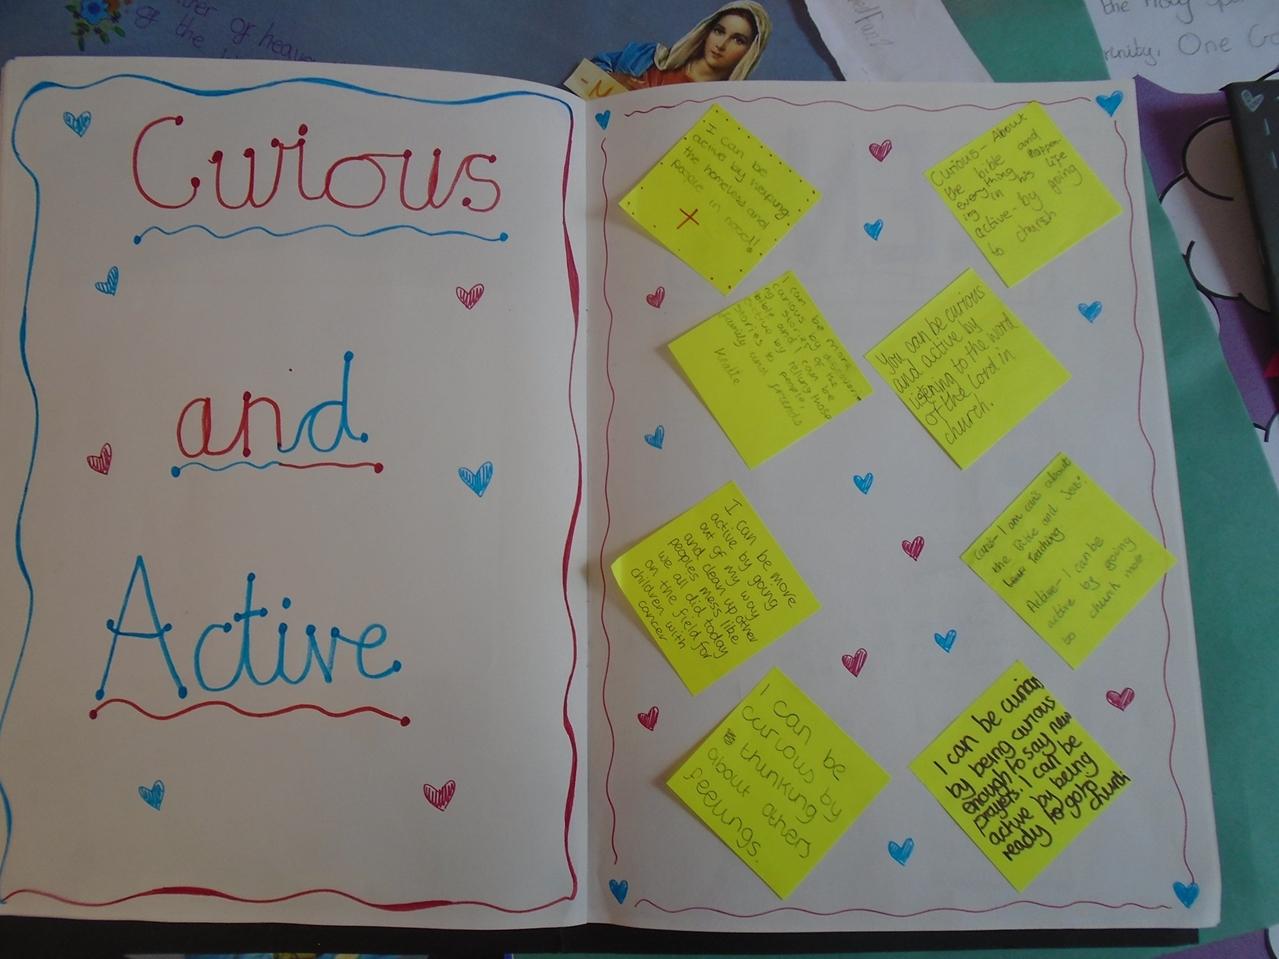 ther of heave
of the
the Holy Sp
rinity, One Go
Curious
and
Active
I can be
active by helping
the homeless and
people in need!
Curious- About
the bible and
everything happen
ing in his life
active- by going
to church
I can be more
curious by discover-
ing stories of the
bible and I can be
active by telling those
stories to people,
family and friends
You can be curious
and active by
listening to the word
of the Lord in
church.
I can be more
active by going
out of my way
and clean up other
peoples mess like
we all did today
on the field for
children with
cancer
the Bible and
Active- I can be
active by going
to church more
I can be
curious by
thinking
about others
feelings.
I can be curious
by being curious
enough to say new
prayers. I can be
active by being
ready to go to
church